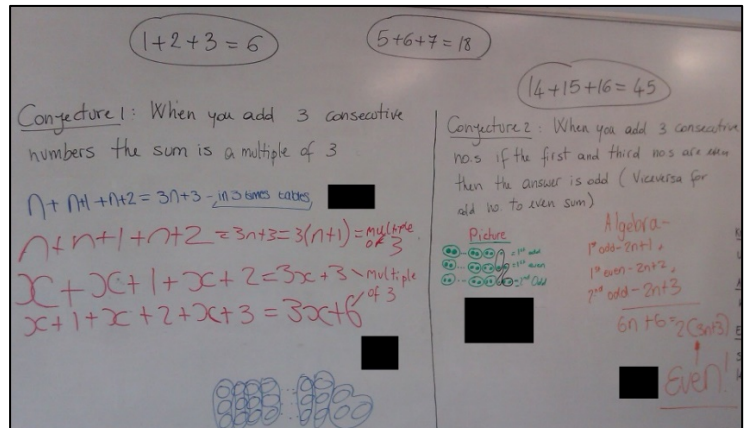 1+2+3=6
5+6+7=18
14+15+16=45
Conjecture 1: When you add 3 consecutive
numbers the sum is a multiple of 3
n+ n+1 +n+2 = 3n+3 - in 3 times tables
n+n+1+n+2 = 3n+3 = 3(n+1) = multiple
of 3
x+x+1+x+2=3x+3 multiple
of 3
x+1+x+2+x+3 = 3x+6
Conjecture 2: When you add 3 consecutive
no.s if the first and third no.s are even
then the answer is odd (Viceversa for
odd no. to even sum)
Picture
=1st odd
=1st even
=2nd Odd
Algebra-
1st odd - 2n+1,
1st even - 2n+2,
2nd odd - 2n+3
6n+6=2(3n+3)
Even!